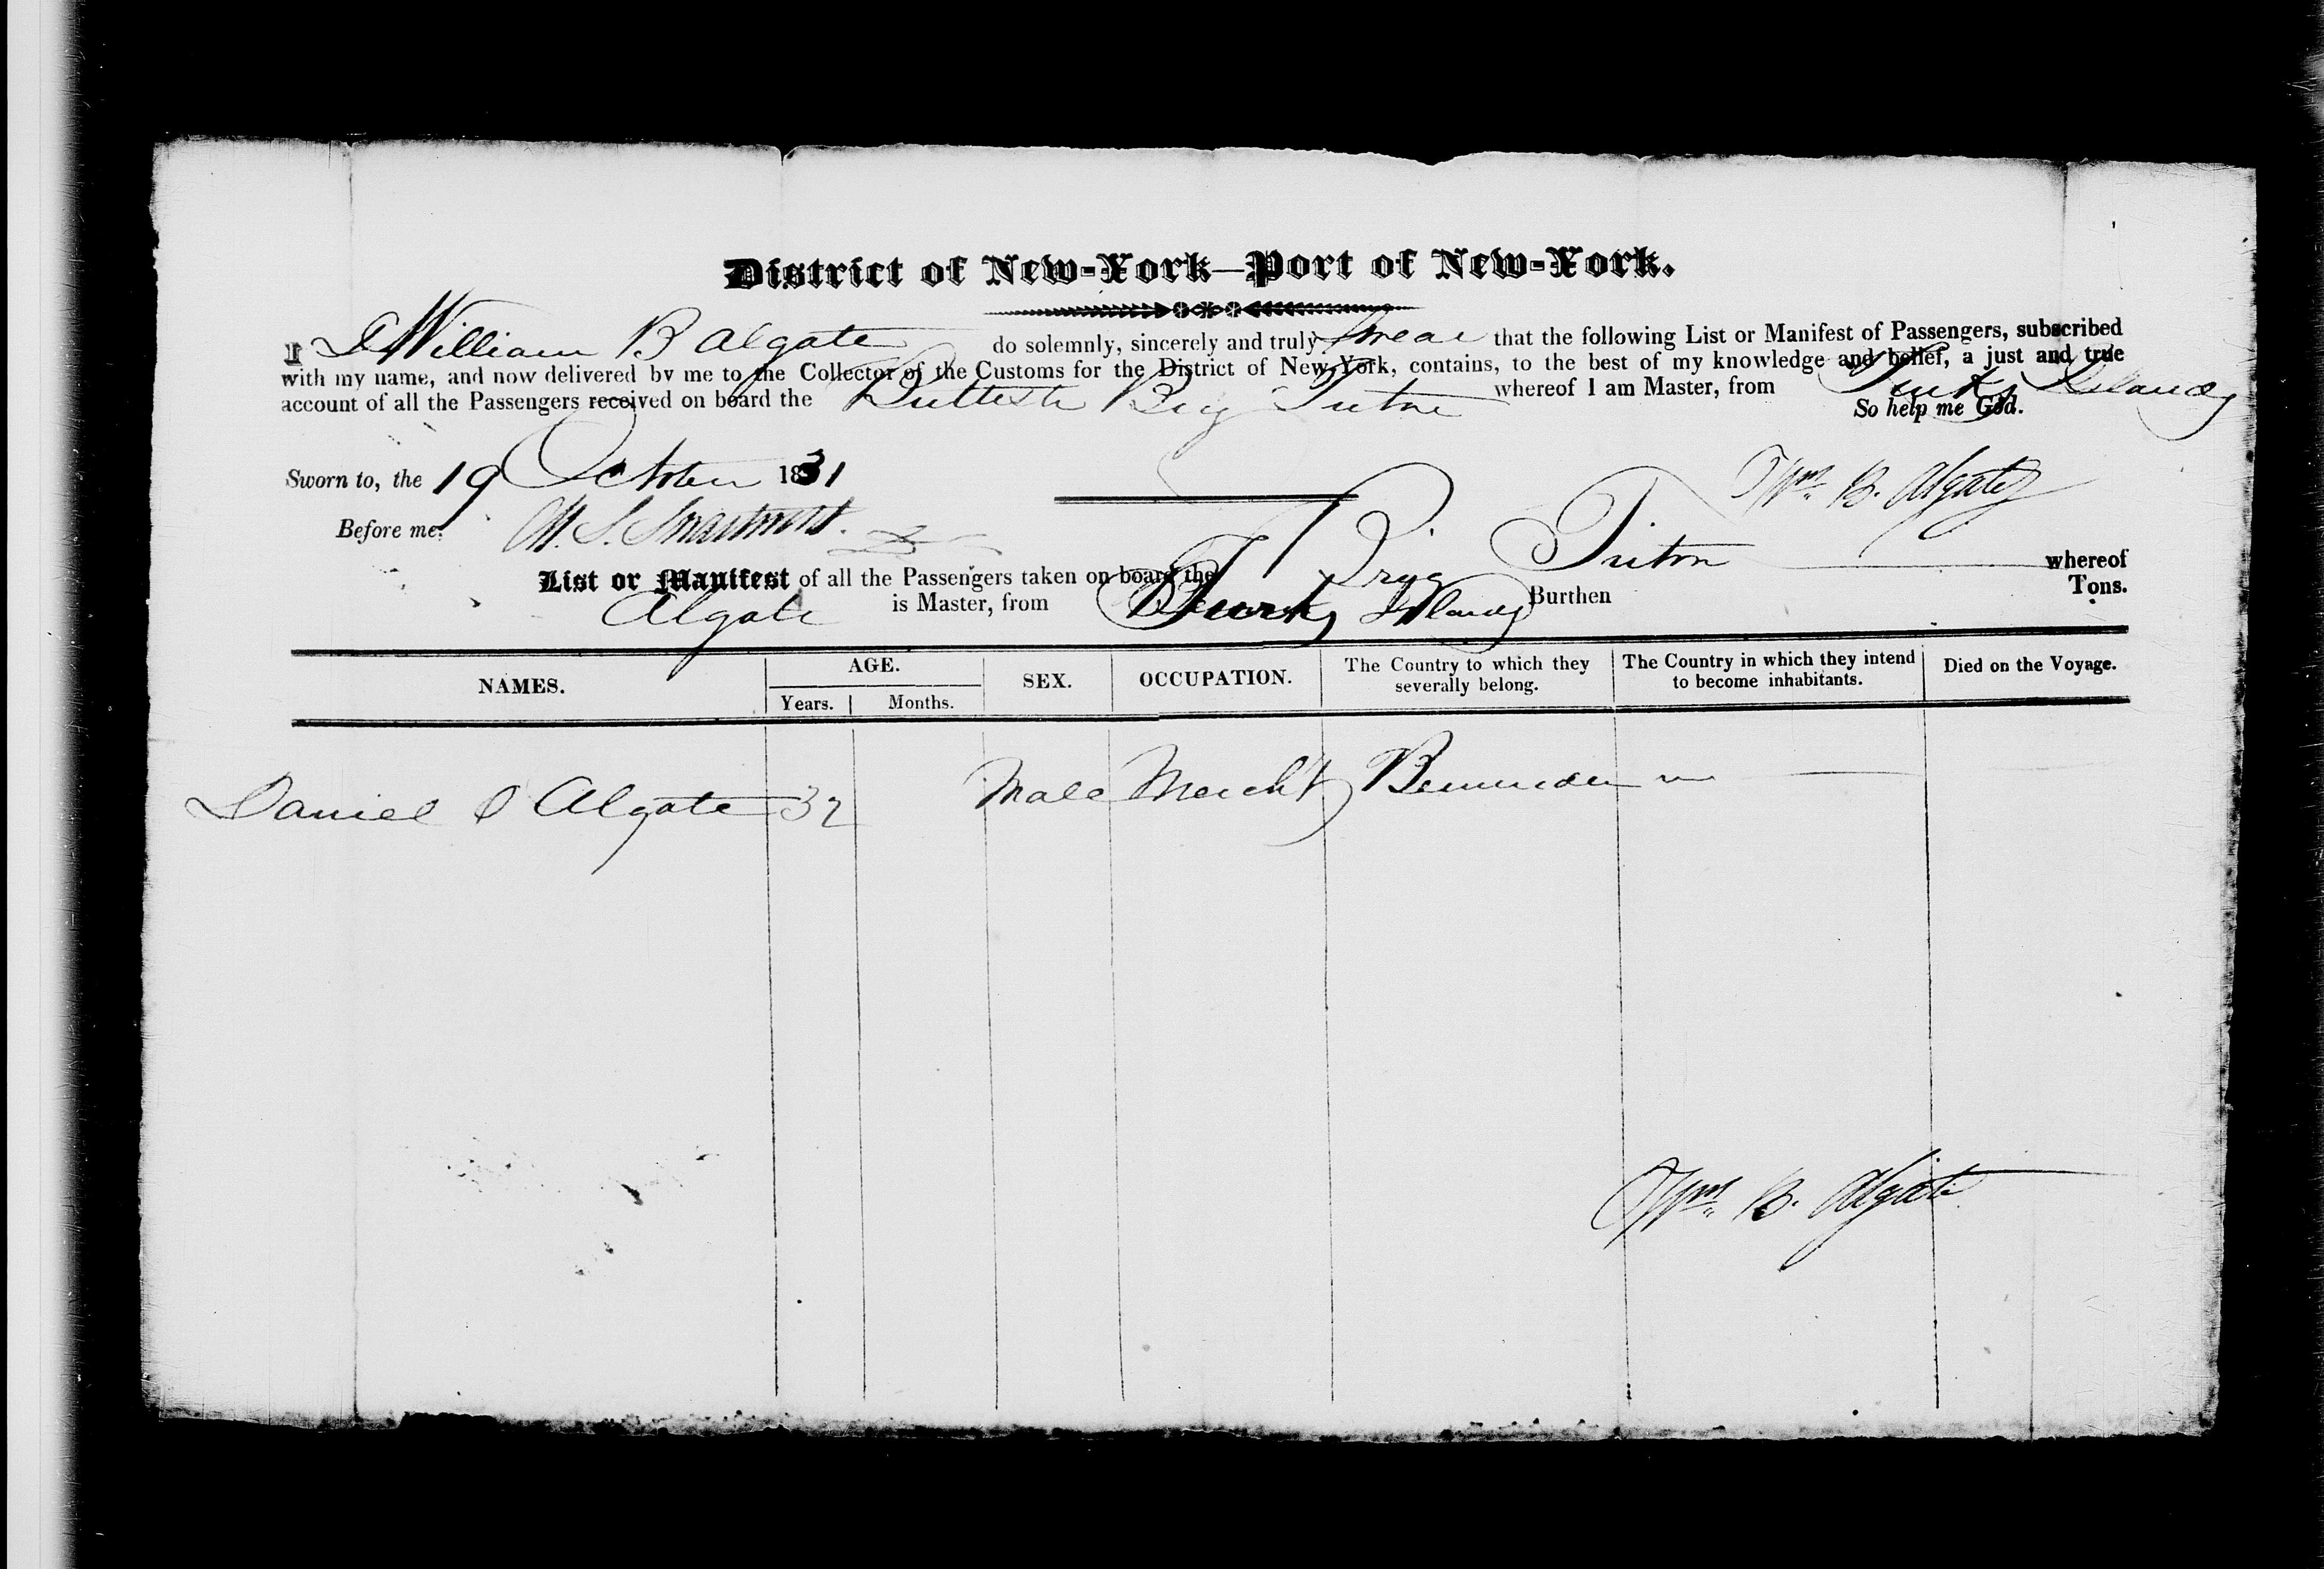 District of New-York—Port of New-York.
I I William B Algate do solemnly, sincerely and truly swear that the following List or Manifest of Passengers, subscribed
with my name, and now delivered by me to the Collector of the Customs for the District of New-York, contains, to the best of my knowledge and belief, a just and true
account of all the Passengers received on board the Brittish Brig Triton whereof I am Master, from Turks Islands
So help me God.
Sworn to, the 19 October 1831
Wm. B. Algate
Before me,
List or Manifest of all the Passengers taken on board the Brig Triton whereof
Algate is Master, from Turks Islands Burthen Tons.
NAMES. AGE. SEX. OCCUPATION. The Country to which they severally belong. The Country in which they intend to become inhabitants. Died on the Voyage.
Years. Months.
Daniel Algate 32 Male Mercht Bermuda
Wm. B. Algate